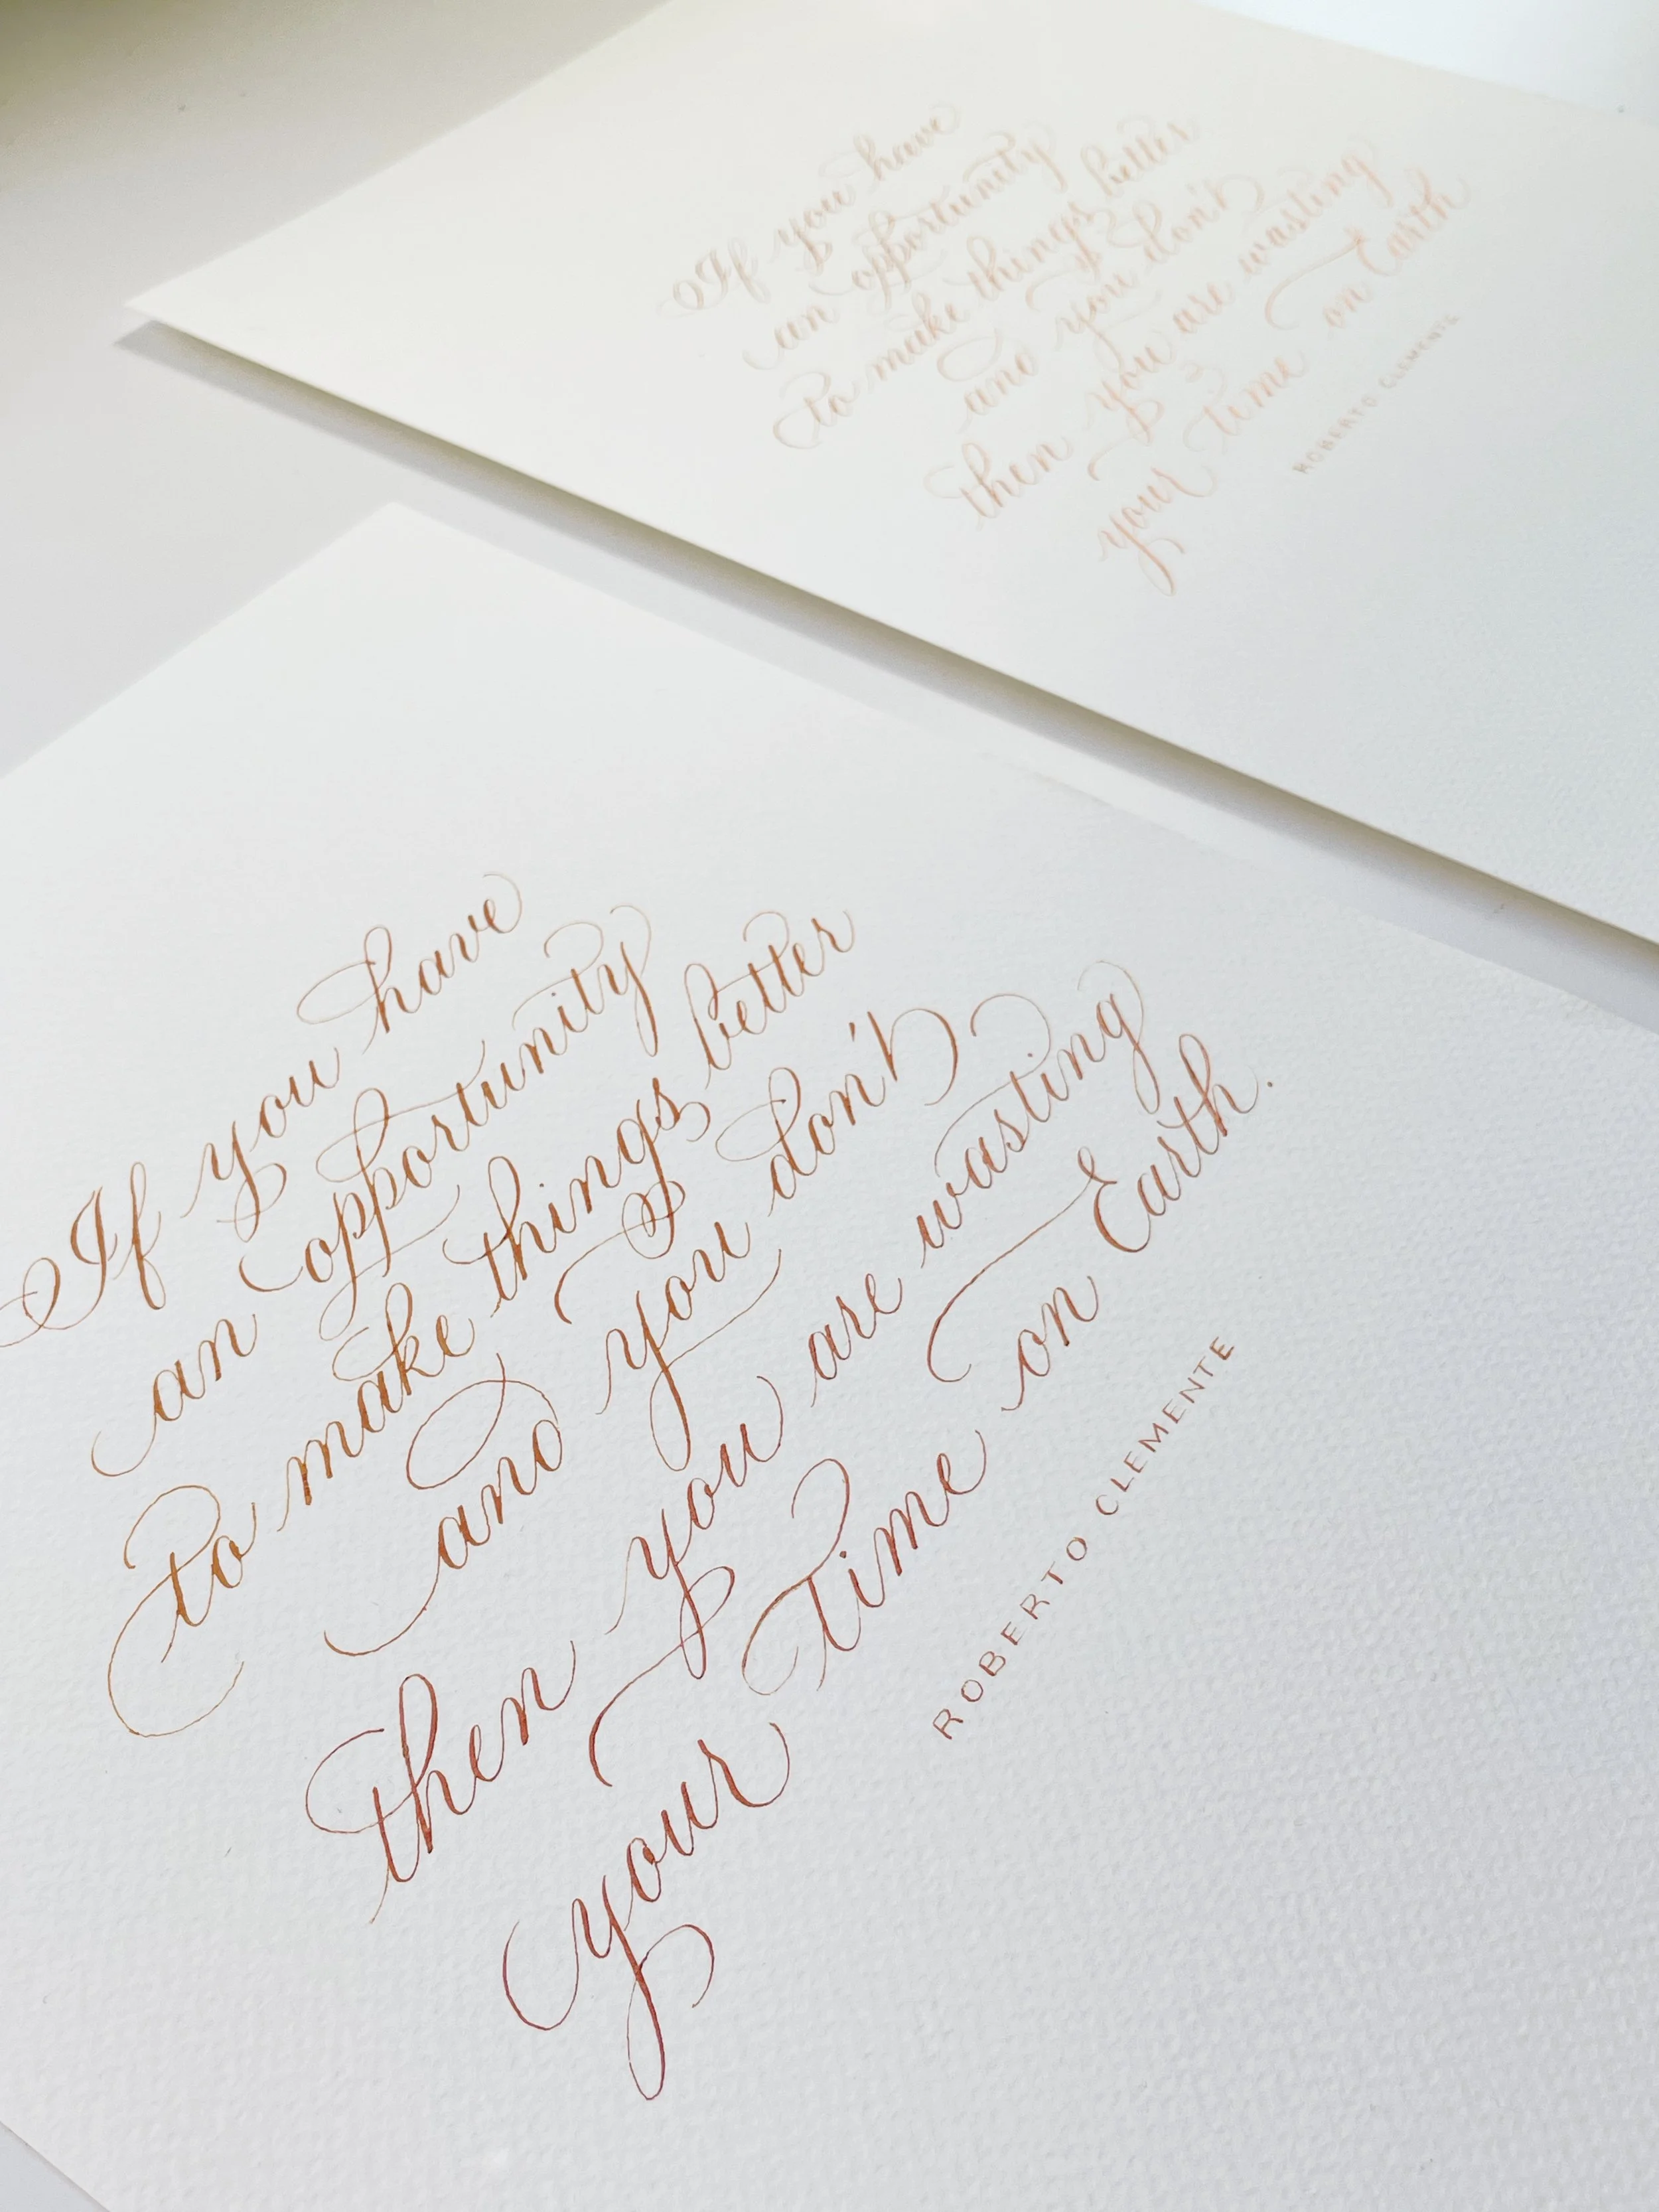 If you have
an opportunity
to make things better
and you don't
then you are wasting
your time on Earth.
ROBERTO CLEMENTE
If you have
an opportunity
to make things better
and you don't
then you are wasting
your time on Earth
ROBERTO CLEMENTE